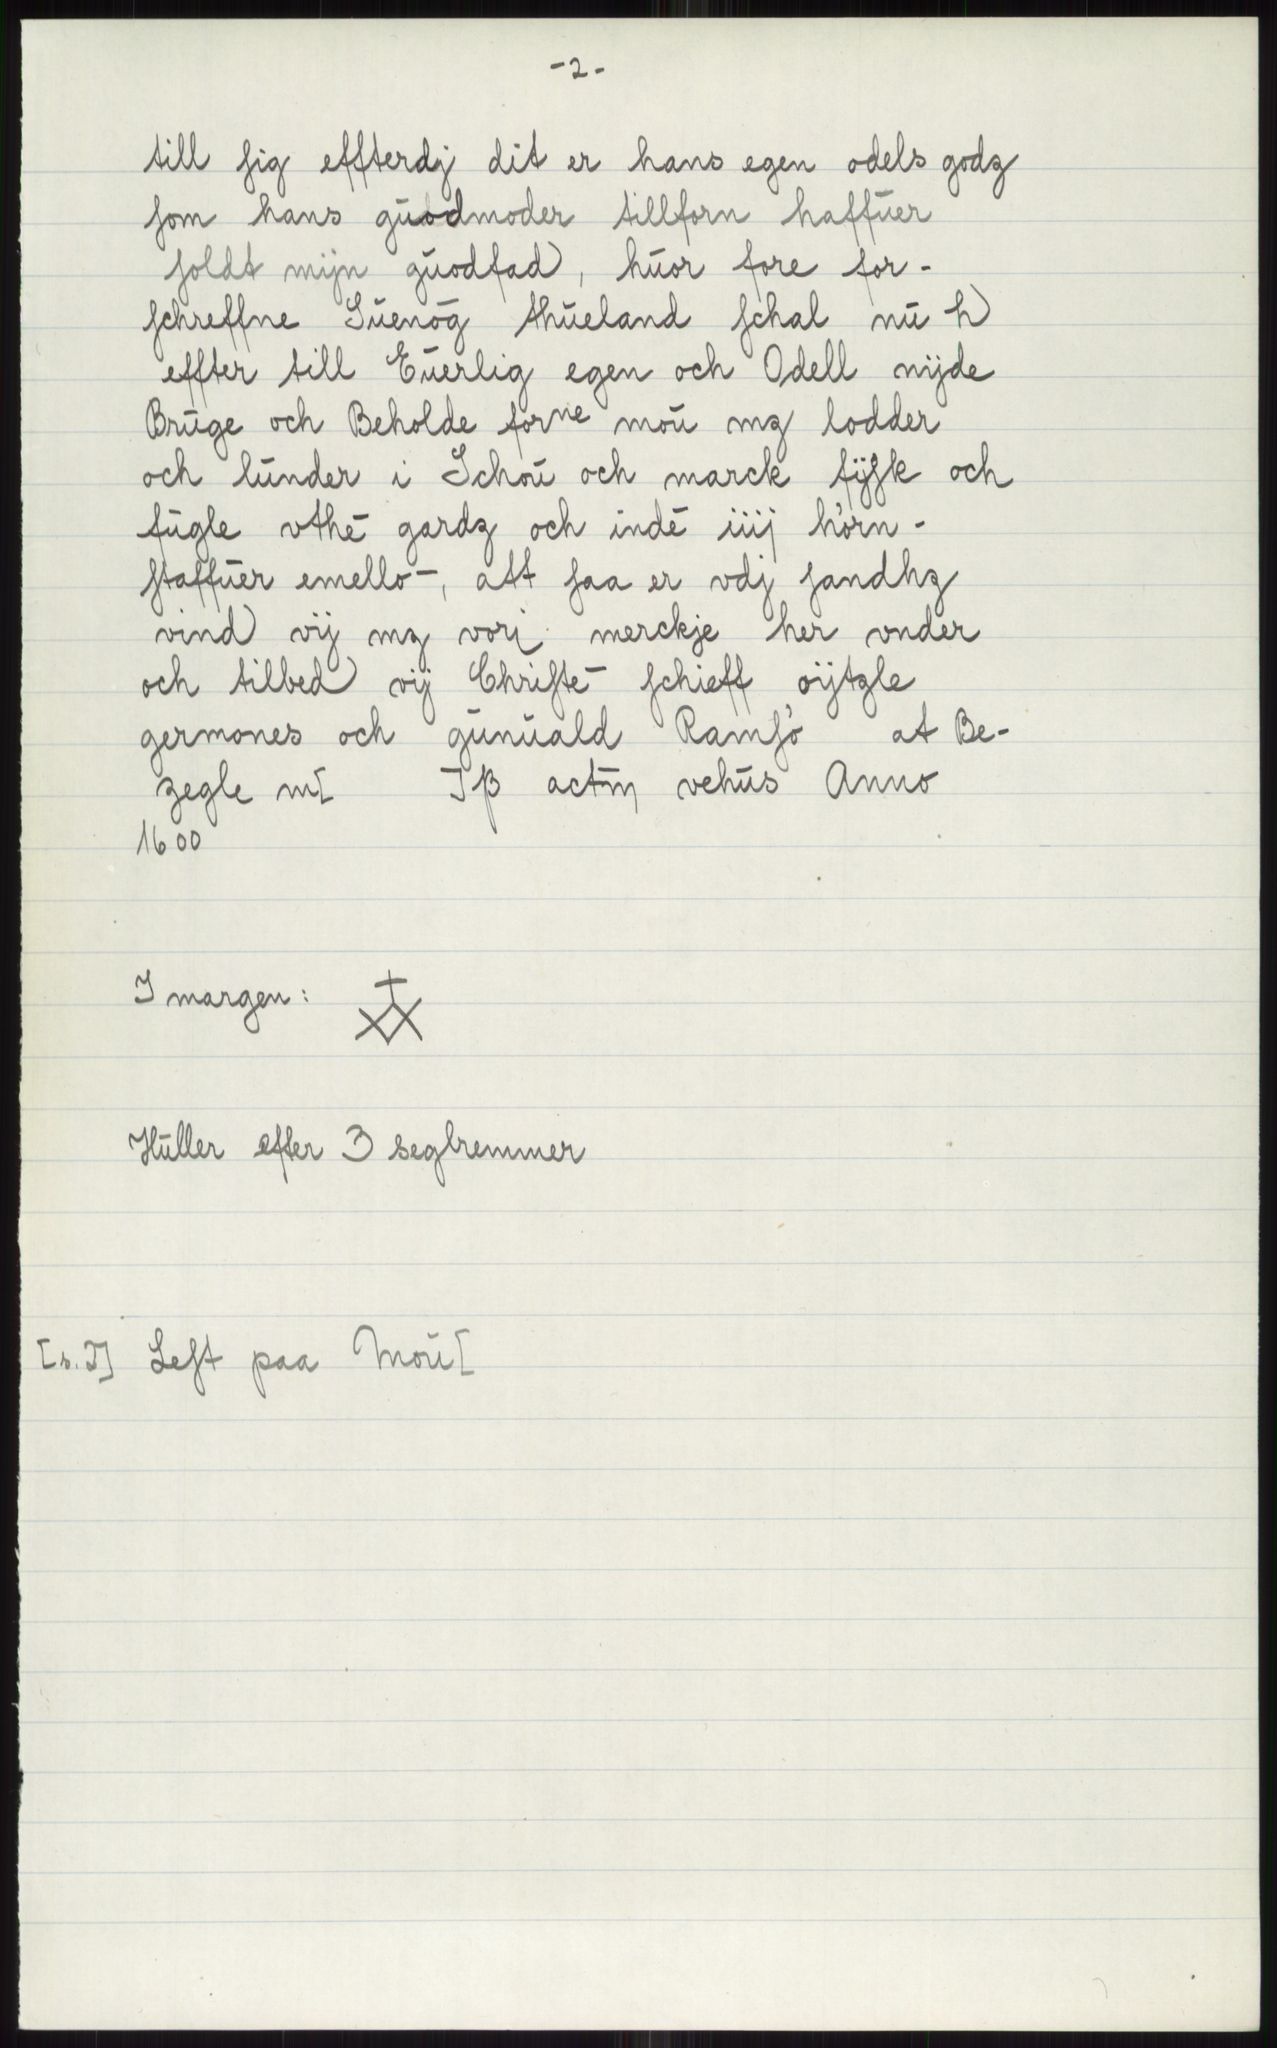 -2-
till ſig effterdj dit er hans egen odels godz
ſom hans guodmoder tillforn haffuer
ſoldt mijn guodfad), huor fore for-
ſchreffne Suenōg thueland ſchal nu h)
effter till Euerlig egen och Odell nijde
Bruge och Beholde forne mou mz lodder
och lunder i Schou och marck fijſk och
fugle vthē gardz och indē iiij hörn-
ſtaffuer emello-, att ſaa er vdj ſandhz
vind) vij mz vorj merckje her vnder
och tilbed) vij Chriſtē ſchieff oijtzle
germones och gunuald Ramſö at Be-
zegle m[ Iβ actm̄ vehus Anno
1600
I margen:
Huller efter 3 seglremmer
[s.I] Leſt paa Mou[